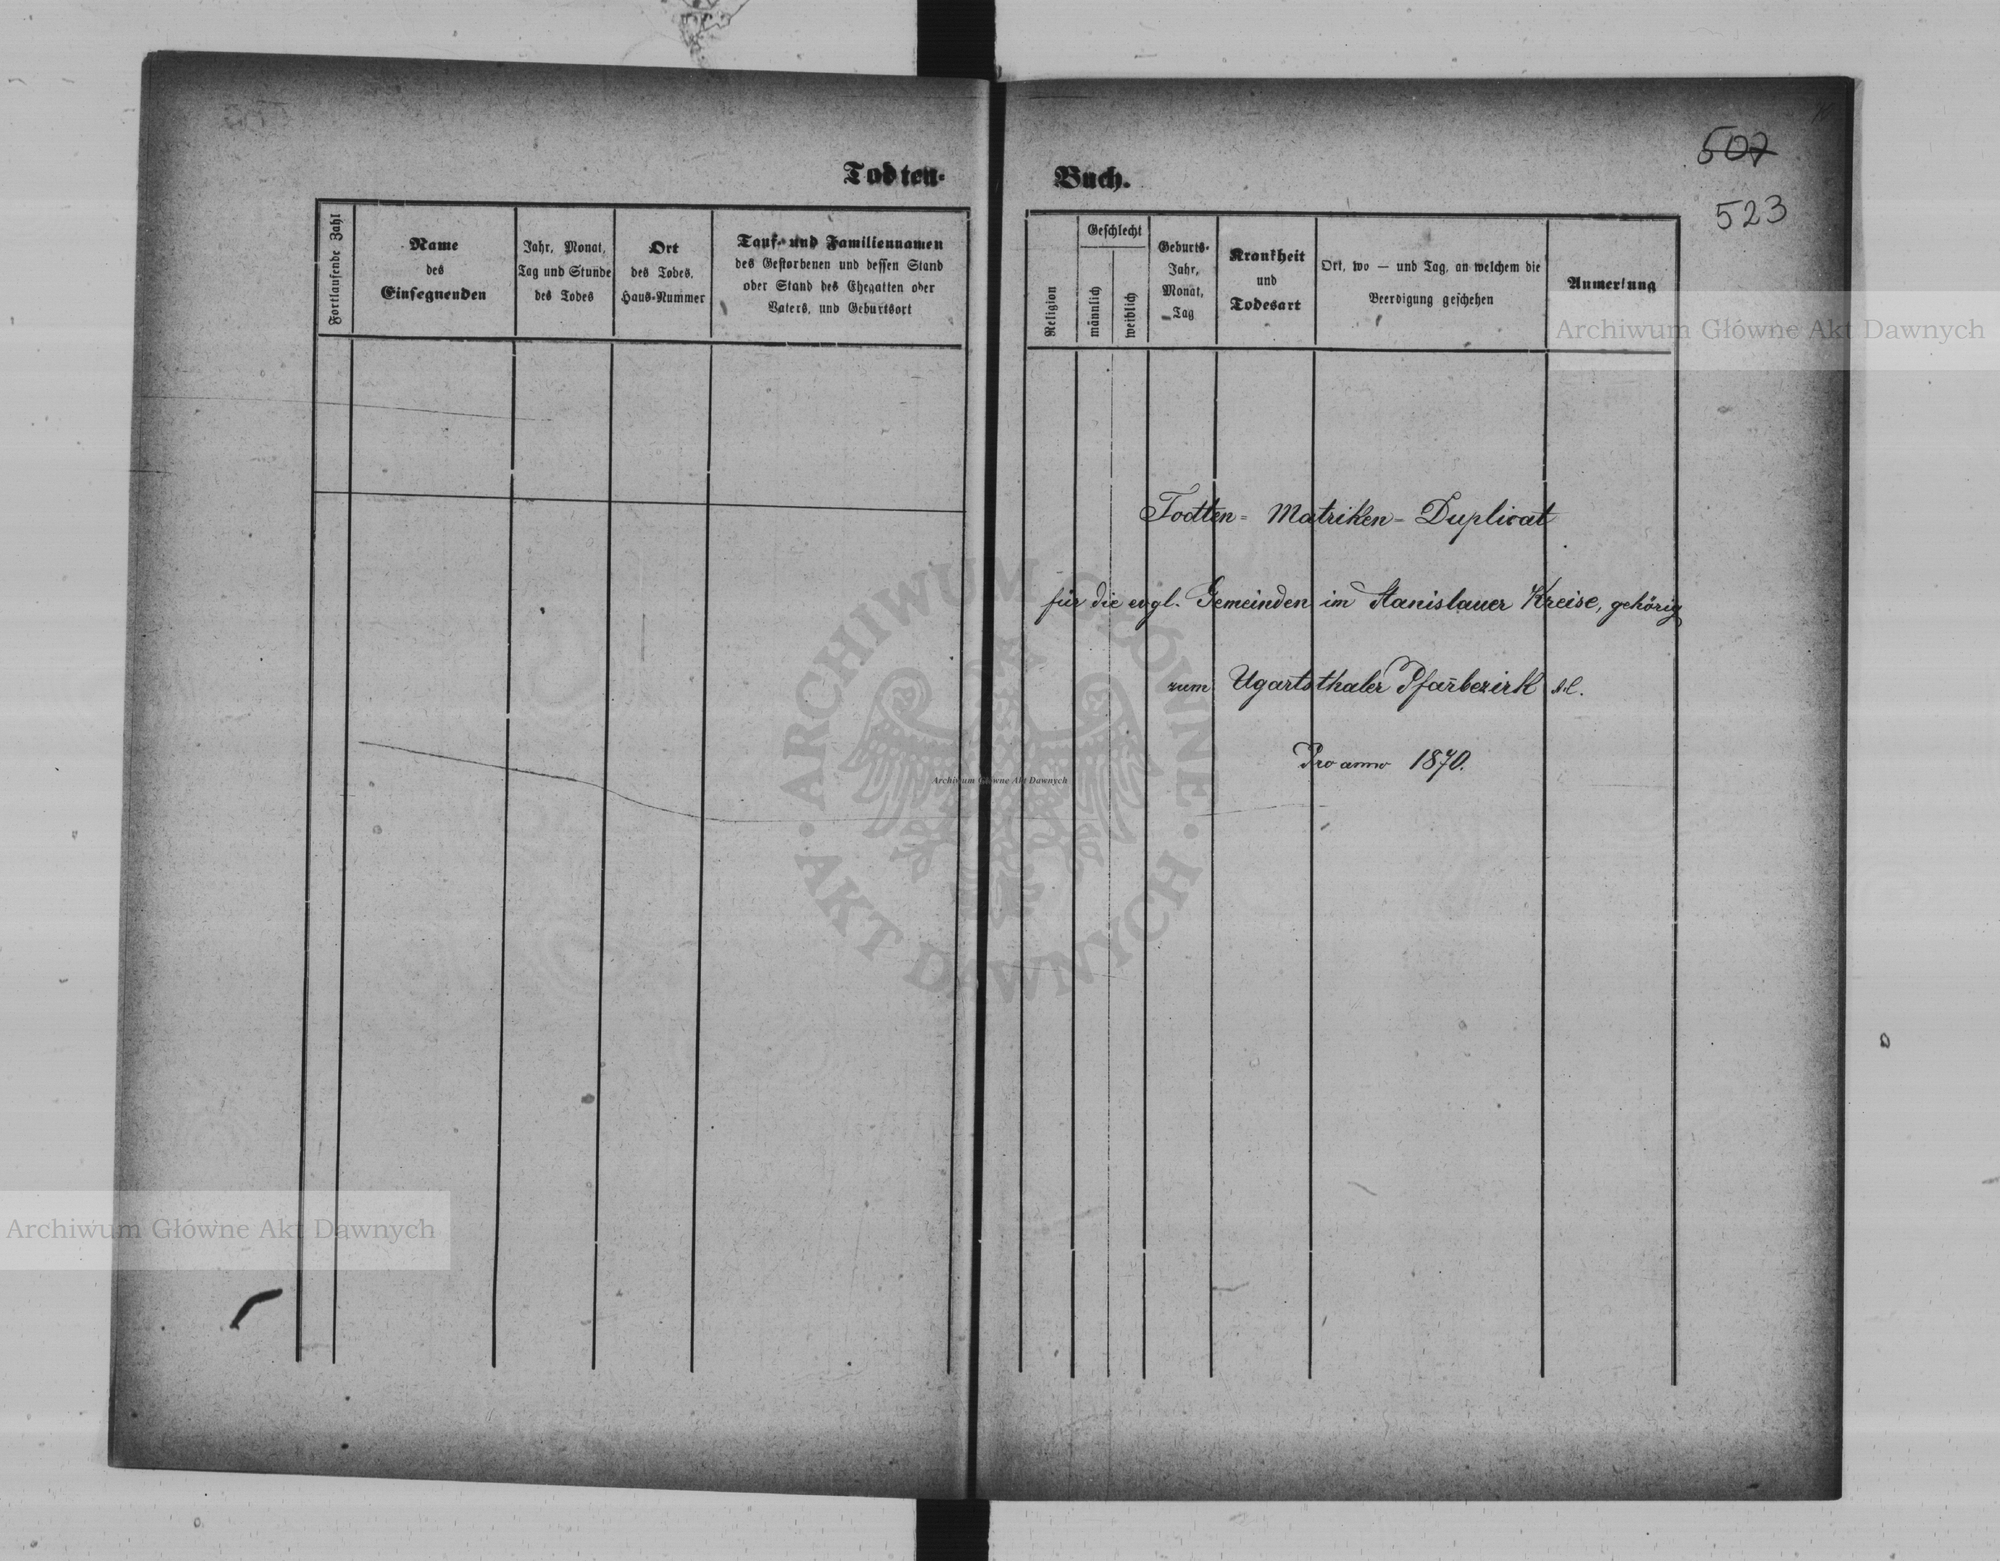 507
523
Todten-
Buch.
Fortlaufende Zahl
Name
des
Einsegnenden
Jahr, Monat,
Tag und Stunde
des Todes
Ort
des Todes,
Haus-Nummer
Tauf- und Familiennamen
des Gestorbenen und dessen Stand
oder Stand des Ehegatten oder
Vaters, und Geburtsort
Religion
Geschlecht
männlich
weiblich
Geburts-
Jahr,
Monat,
Tag
Krankheit
und
Todesart
Ort, wo — und Tag, an welchem die
Beerdigung geschehen
Anmerkung
Archiwum Główne Akt Dawnych
Todten- Matriken- Duplicat
für die evgl. Gemeinden im Stanislauer Kreise, gehörig
zum Ugartsthaler Pfar̄bezirk
Pro anno 1870.
ARCHIWUM GŁÓWNE
Archiwum Główne Akt Dawnych
AKT DAWNYCH
Archiwum Główne Akt Dawnych